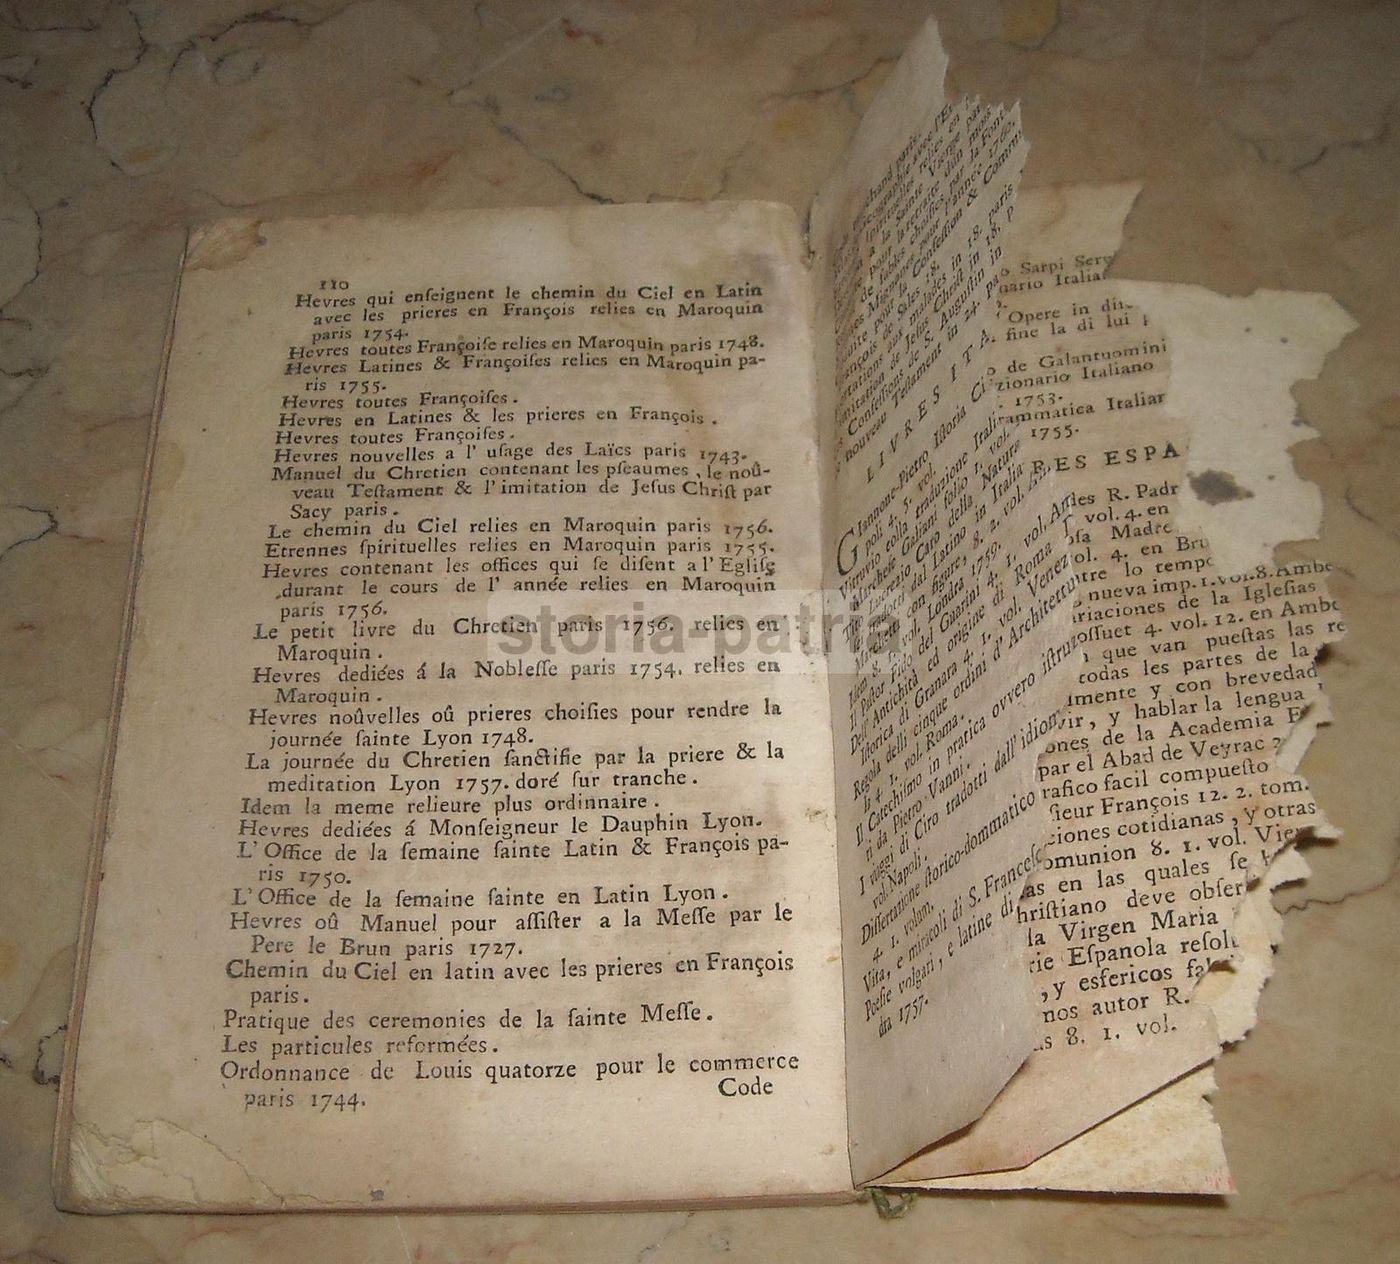 110
Hevres qui enſeignent le chemin du Ciel en Latin
avec les prieres en François relies en Maroquin
paris 1754.
Hevres toutes Françoiſe relies en Maroquin paris 1748.
Hevres Latines & Françoiſes relies en Maroquin pa-
ris 1755.
Hevres toutes Françoiſes.
Hevres en Latines & les prieres en François.
Hevres toutes Françoiſes.
Hevres nouvelles a l' uſage des Laïcs paris 1743.
Manuel du Chretien contenant les pſeaumes, le noû-
veau Teſtament & l'imitation de Jeſus Chriſt par
Sacy paris.
Le chemin du Ciel relies en Maroquin paris 1756.
Etrennes ſpirituelles relies en Maroquin paris 1755.
Hevres contenant les offices qui ſe diſent a l'Egliſe
durant le cours de l' année relies en Maroquin
paris 1756.
Le petit livre du Chretien paris 1756. relies en
Maroquin.
Hevres dediées á la Nobleſſe paris 1754. relies en
Maroquin.
Hevres noûvelles oû prieres choiſies pour rendre la
journée ſainte Lyon 1748.
La journée du Chretien ſanctifie par la priere & la
meditation Lyon 1757. doré ſur tranche.
Idem la meme relieure plus ordinnaire.
Hevres dediées á Monſeigneur le Dauphin Lyon.
L'Office de la ſemaine ſainte Latin & François pa-
ris 1750.
L'Office de la ſemaine ſainte en Latin Lyon.
Hevres oû Manuel pour aſſiſter a la Meſſe par le
Pere le Brun paris 1727.
Chemin du Ciel en latin avec les prieres en François
paris.
Pratique des ceremonies de la ſainte Meſſe.
Les particules reformées.
Ordonnance de Louis quatorze pour le commerce
paris 1744.
Code
storia-patria
nouveau Teſtament in 24.
LIVRES ITA
Giannone-Pietro Iſtoria Ci
poli 4. 5. vol.
Vitruvio colla traduzione Itali
Marcheſe Galiani folio 1. vol.
Tito Lucrezio Caro della Nature
tradotti dal Latino in Italia
Marchetti con figure 8. 2. vol.
Idem 8. 1. vol. Londra 1759.
Il Paſtor Fido del Guarini 4. 1. vol.
Dell'Antichità ed origine di Roma
Iſtorica di Granara 4. 1. vol. Venez
Regola delli cinque ordini d'Architettu
li 4. 1. vol. Roma.
Il Catechiſmo in pratica ovvero iſtruz
ri da Pietro Vanni.
I viaggi di Ciro tradotti dall'idiom
vol. Napoli.
Diſſertazione ſtorico-dommatico
4. 1. volum.
Vita, e miracoli di S. Franceſc
Poeſie volgari, e latine di
dra 1757.
o Sarpi Serv
nario Italia
Opere in di
fine la di lui
o de Galantuomini
zionario Italiano
1753.
rammatica Italiar
1755.
RES ESPA
les R. Padr
vol. 4. en
ſa Madre
ol. 4. en Bru
tre lo tempo
nueva imp. 1. vol. 8. Ambe
riaciones de la Igleſias
oſſuet 4. vol. 12. en Ambe
que van pueſtas las re
todas les partes de la
lmente y con brevedad
vir, y hablar la lengua
ones de la Academia E
par el Abad de Veyrac 2
rafico facil compueſto
ſieur François 12. 2. tom.
ciones cotidianas, y otras
omunion 8. 1. vol. Vien
as en las quales ſe
hriſtiano deve obſer
la Virgen Maria
rie Eſpanola reſol
, y esfericos fa
nos autor R.
as 8. 1. vol.